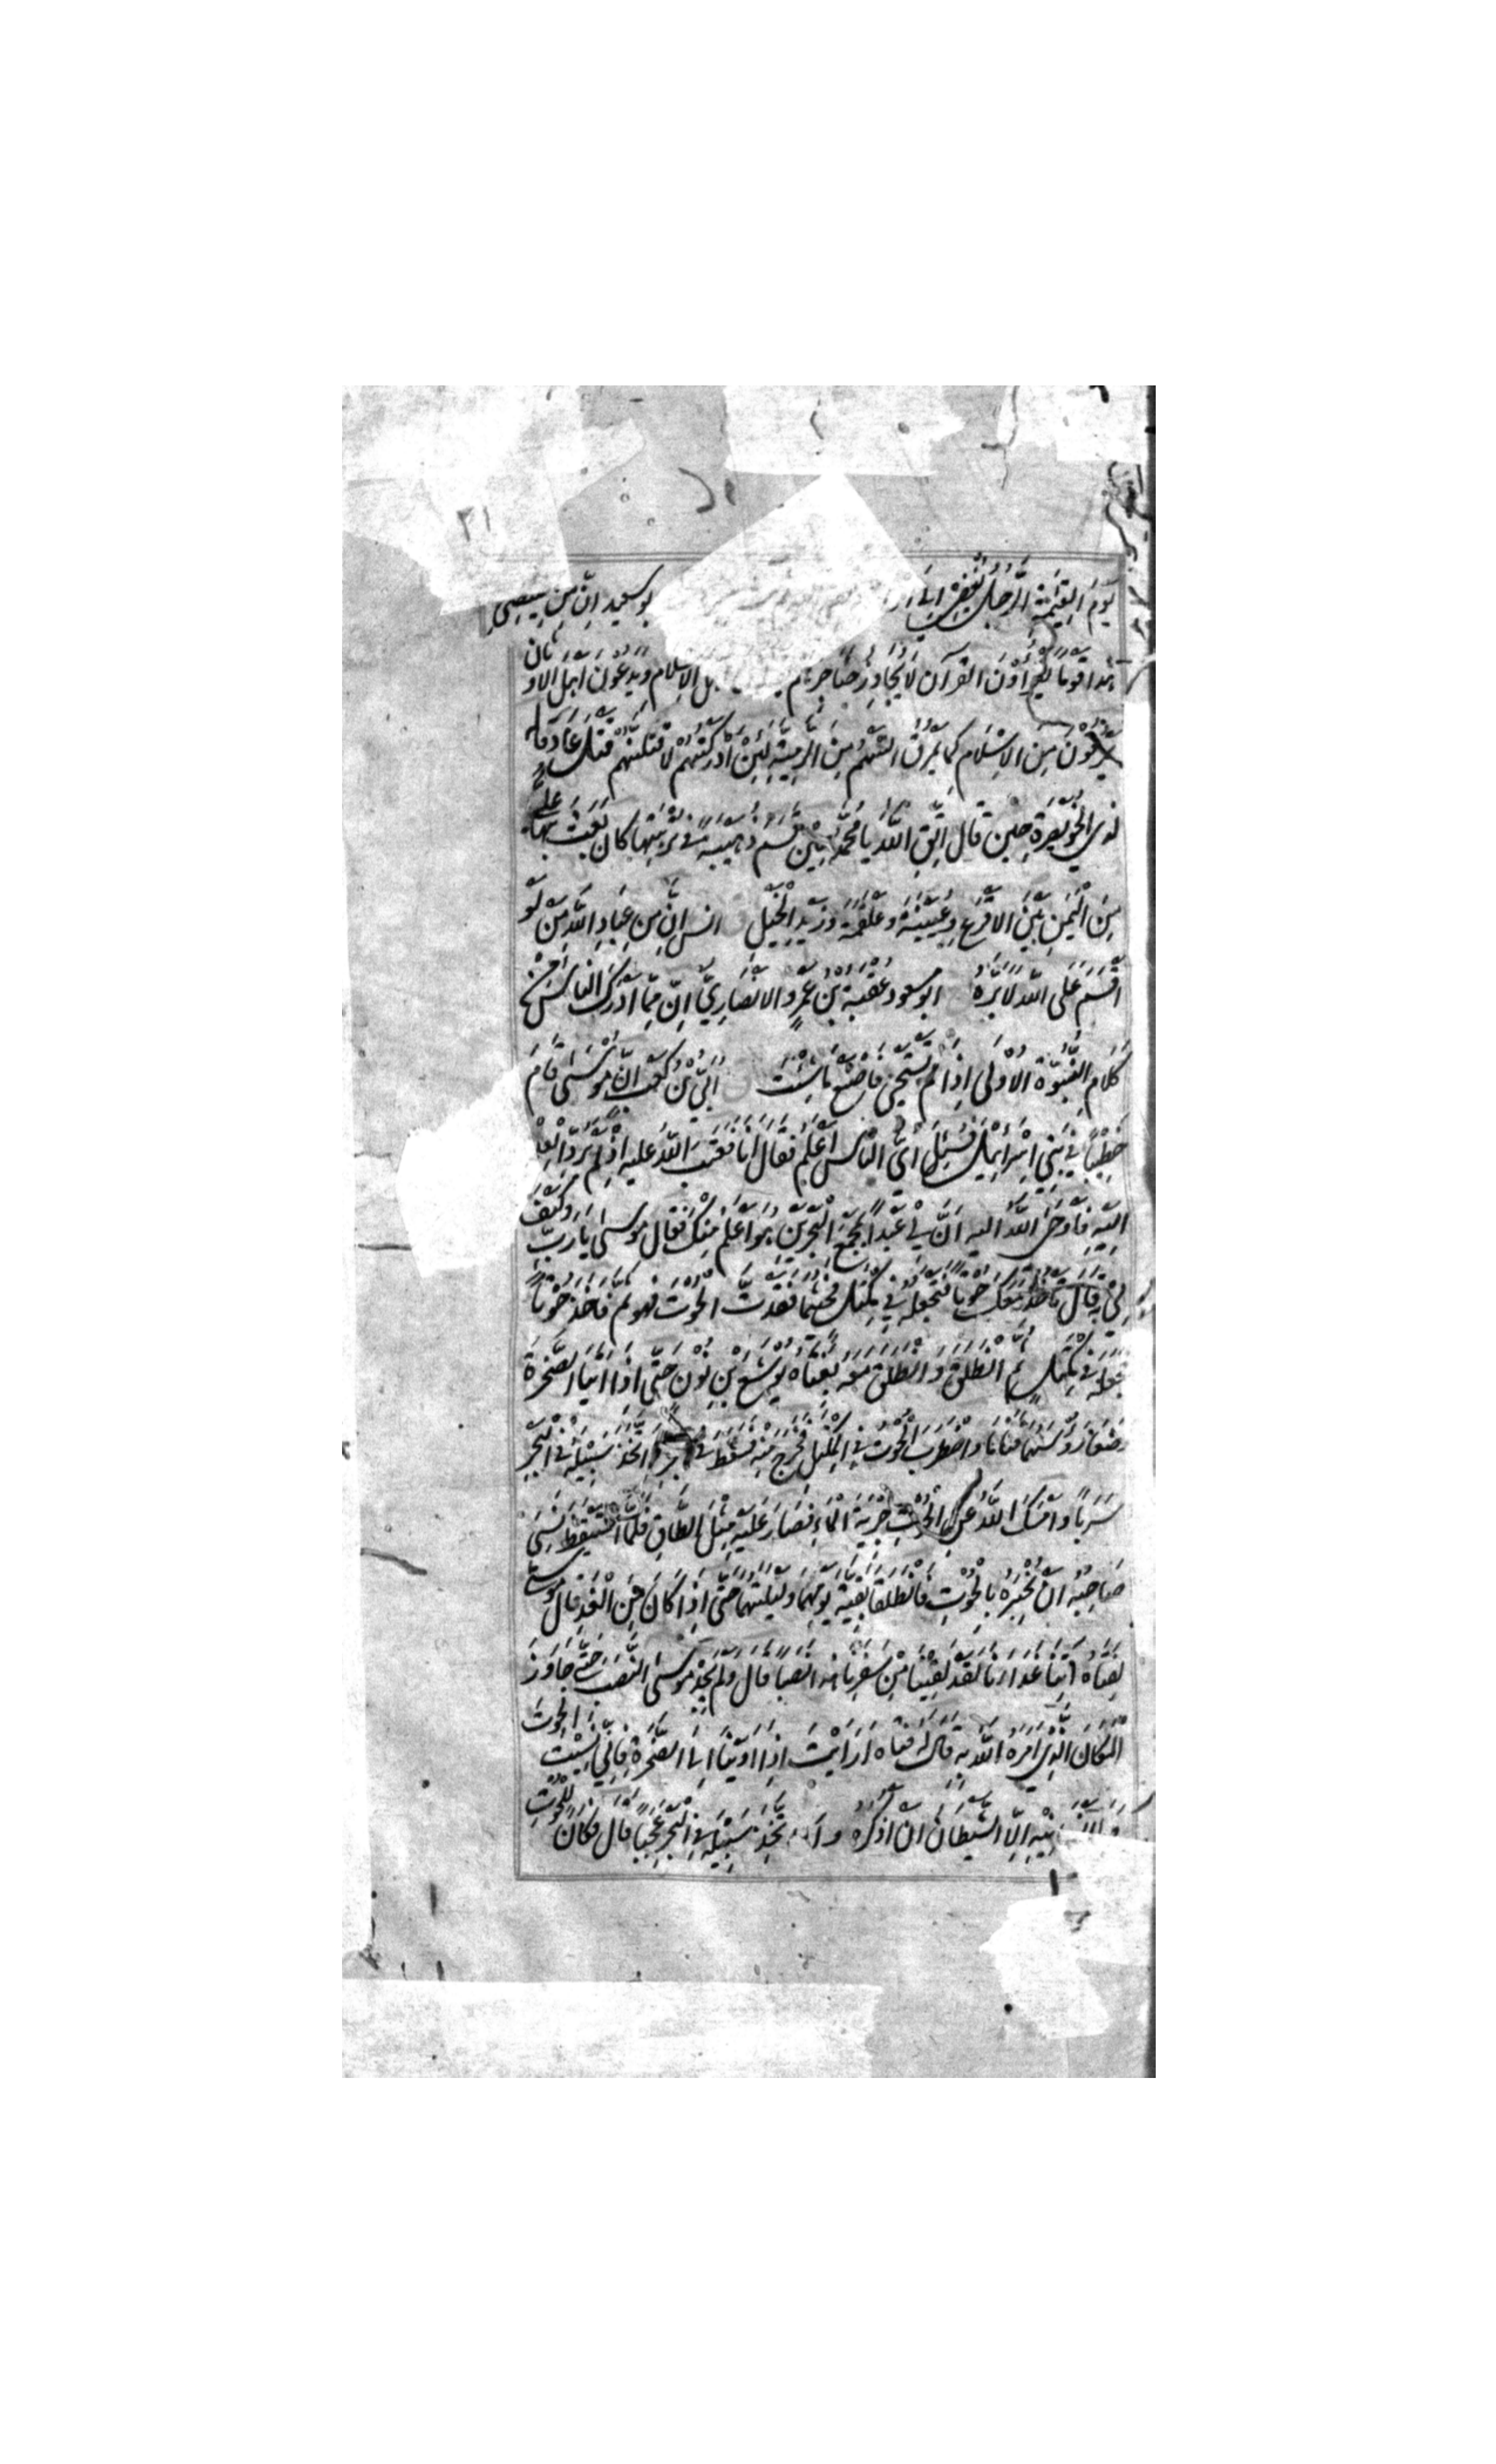 ٢١
يَوْمَ الْقِيٰمَةِ الرَّجُلُ يُفْضِيْ اِلٰى بوسعيد اِنَّ مِنْ ضِئْضِئِ
هٰذا قَوْمًا يَقْرَءُوْنَ الْقُرآنَ لَا يُجَاوِزُ حَنَاجِرَهُمْ اهل الاِسْلَامِ وَيَدَعُوْنَ اَهْلَ الْاَوْثان
يَمْرُقُوْنَ مِنَ الاِسْلَامِ كَمَا يَمْرُقُ السَّهْمُ مِنَ الرَّمِيَّةِ لَئِنْ اَدْرَكْتُهُمْ لَاَقْتُلَنَّهُمْ قَتْلَ عَادٍ قاله
لذي الخويصرة حِيْنَ قَالَ اِتَّقِ اللّٰهَ يَا مُحَمَّدُ حِيْنَ قَسَمَ ذُهَيْبَةً فِيْ تُرْبَتِهَا كَانَ بَعَثَ بِهَا عَلِيٌّ
مِنَ الْيَمَنِ بَيْنَ الْاَقْرَعِ وَعُيَيْنَةَ وَعَلْقَمَةَ وَزَيْدِ الْخَيْلِ انس اِنَّ مِنْ عِبَادِ اللّٰهِ مَنْ لَوْ
اَقْسَمَ عَلَى اللّٰهِ لَاَبَرَّهُ ابو مسعود عُقْبَةُ بْنُ عَمْرٍو الاَنْصَارِيُّ اِنَّ مِمَّا اَدْرَكَ النَّاسُ مِنْ
كَلَامِ النُّبُوَّةِ الْاُوْلٰى اِذَا لَمْ تَسْتَحْيِ فَاصْنَعْ مَا شِئْتَ اُبَيُّ بْنُ كَعْبٍ اِنَّ مُوْسٰى قَامَ
خَطِيْبًا فِيْ بَنِيْ اِسْرَائِيْلَ فَسُئِلَ اَيُّ النَّاسِ اَعْلَمُ فَقَالَ اَنَا فَعَتَبَ اللّٰهُ عليه اِذْ لَمْ يَرُدَّ الْعِلْمَ
اِلَيْهِ فَاَوْحَى اللّٰهُ اليه اَنَّ لِيْ عَبْدًا بِمَجْمَعِ الْبَحْرَيْنِ هُوَ اَعْلَمُ مِنْكَ فَقَالَ مُوسٰى يَا رَبِّ وَكَيْفَ
لِيْ بِهٖ قَالَ تَأْخُذُ مَعَكَ حُوْتًا فَتَجْعَلُهُ فِيْ مِكْتَلٍ فَحَيْثُمَا فَقَدْتَ الْحُوْتَ فَهُوَ ثَمَّ فَاَخَذَ حُوْتًا
فَجَعَلَهُ فِيْ مِكْتَلٍ ثُمَّ انْطَلَقَ وَانْطَلَقَ مَعَهُ بِفَتَاهُ يُوْشَعَ بْنِ نُوْنٍ حَتّٰى اِذَا اَتَيَا الصَّخْرَةَ
وَضَعَا رُؤُسَهُمَا فَنَامَا وَاضْطَرَبَ الْحُوْتُ فِي الْمِكْتَلِ فَخَرَجَ مِنْهُ فَسَقَطَ فِي الْبَحْرِ فَاتَّخَذَ سَبِيْلَهُ فِي الْبَحْرِ
سَرَبًا وَاَمْسَكَ اللّٰهُ عَنِ الْحُوْتِ جِرْيَةَ الْمَاءِ فَصَارَ عَلَيْهِ مِثْلَ الطَّاقِ فَلَمَّا اسْتَيْقَظَ نَسِيَ
صَاحِبُهُ اَنْ يُخْبِرَهُ بِالْحُوْتِ فَانْطَلَقَا بَقِيَّةَ يَوْمِهِمَا وَلَيْلَتِهِمَا حَتّٰى اِذَا كَانَ مِنَ الْغَدِ قَالَ مُوسٰى
لِفَتَاهُ اٰتِنَا غَدَاءَنَا لَقَدْ لَقِيْنَا مِنْ سَفَرِنَا هٰذَا نَصَبًا قَالَ وَلَمْ يَجِدْ مُوْسٰى النَّصَبَ حَتّٰى جَاوَزَ
الْمَكَانَ الَّذِيْ اَمَرَهُ اللّٰهُ بِهٖ قَالَ لَهُ فَتَاهُ اَرَاَيْتَ اِذْ اَوَيْنَا اِلَى الصَّخْرَةِ فَاِنِّيْ نَسِيْتُ الْحُوْتَ
اِلَّا الشَّيْطَانُ اَنْ اَذْكُرَهُ سَبِيْلَهُ فِي الْبَحْرِ عَجَبًا قَالَ فَكَانَ لِلْحُوْتِ